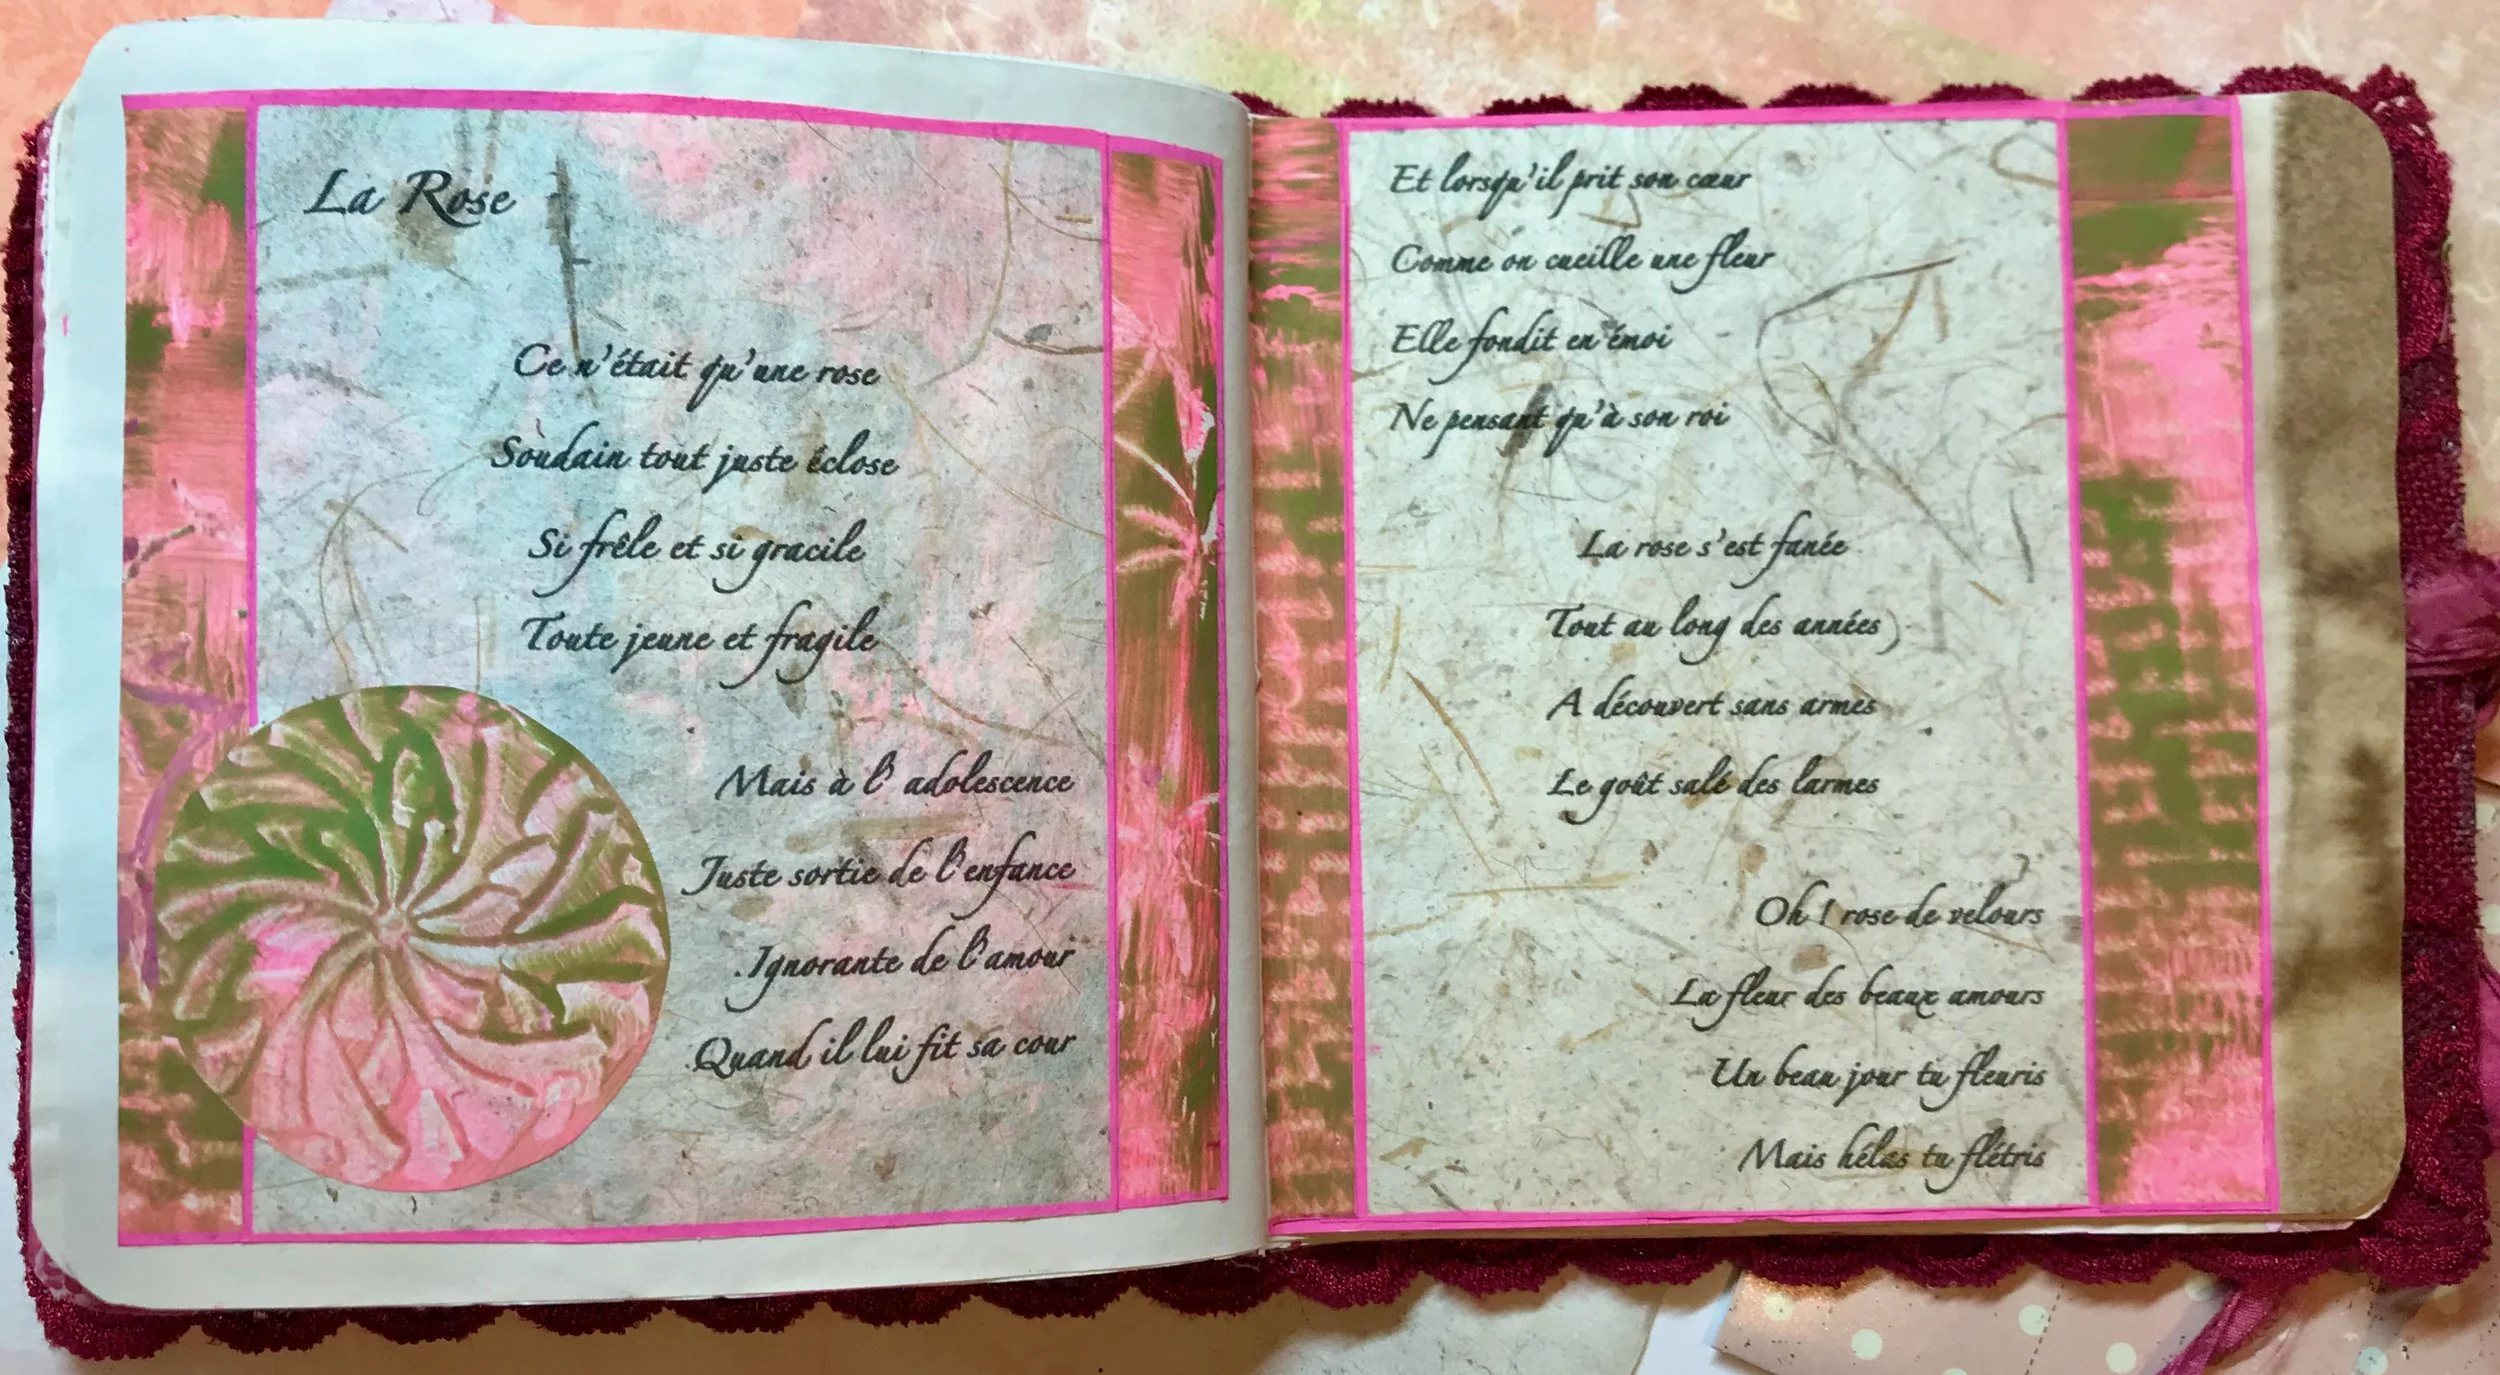 La Rose
Ce n'était qu'une rose
Soudain tout juste éclose
Si frêle et si gracile
Toute jeune et fragile
Mais à l' adolescence
Juste sortie de l'enfance
Ignorante de l'amour
Quand il lui fit sa cour
Et lorsqu'il prit son cœur
Comme on cueille une fleur
Elle fondit en émoi
Ne pensant qu'à son roi
La rose s'est fanée
Tout au long des années
A découvert sans armes
Le goût salé des larmes
Oh ! rose de velours
La fleur des beaux amours
Un beau jour tu fleuris
Mais hélas tu flétris